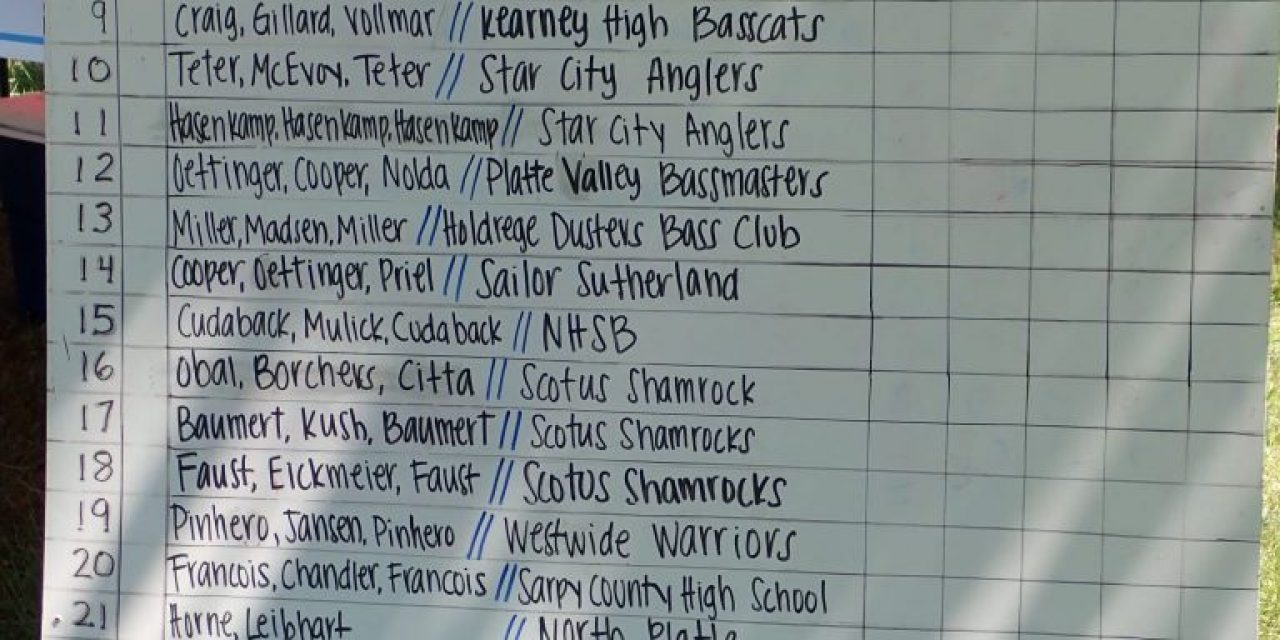 9 Craig, Gillard, Vollmar // Kearney High Basscats
10 Teter, McEvoy, Teter // Star City Anglers
11 Hasenkamp, Hasenkamp, Hasenkamp // Star City Anglers
12 Oettinger, Cooper, Nolda // Platte Valley Bassmasters
13 Miller, Madsen, Miller // Holdrege Dusters Bass Club
14 Cooper, Oettinger, Priel // Sailor Sutherland
15 Cudaback, Mulick, Cudaback // NHSB
16 Obal, Borchers, Citta // Scotus Shamrock
17 Baumert, Kush, Baumert // Scotus Shamrocks
18 Faust, Eickmeier, Faust // Scotus Shamrocks
19 Pinhero, Jansen, Pinhero // Westwide Warriors
20 Francois, Chandler, Francois // Sarpy County High School
.21 Horne, Leibhart // North Platte